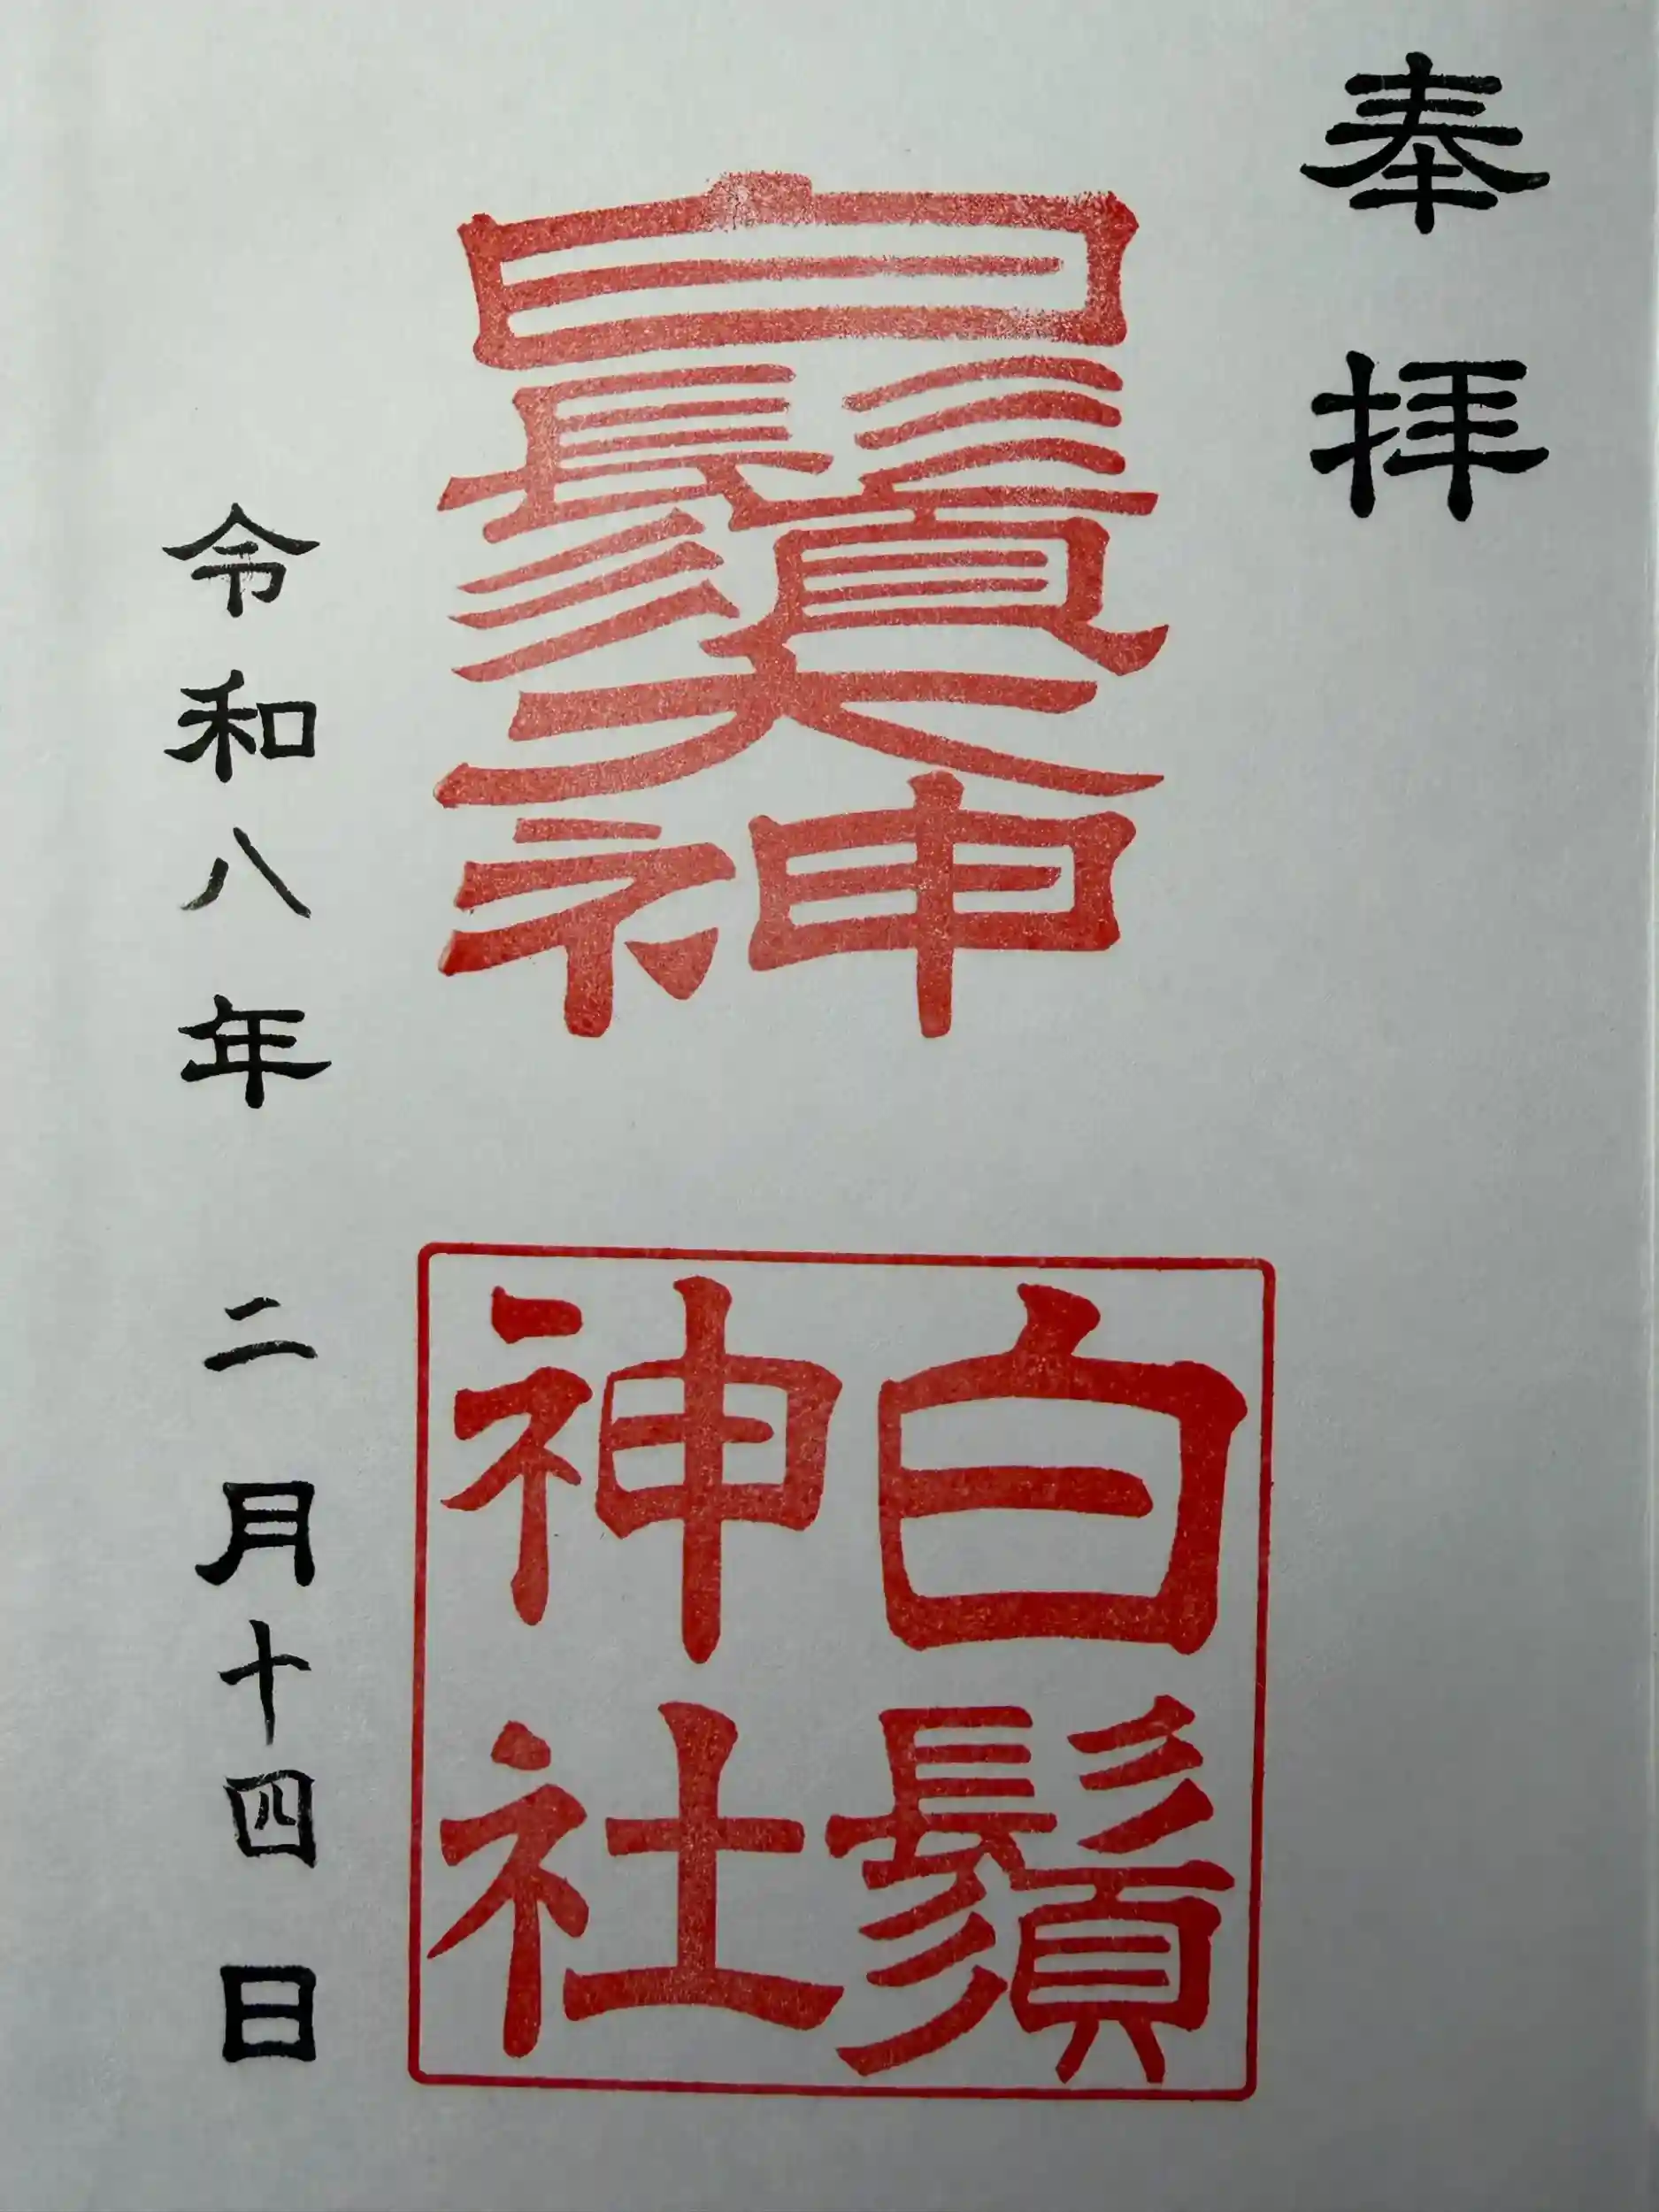 奉拝
白鬚大神
白鬚
神社
令和八年二月十四日